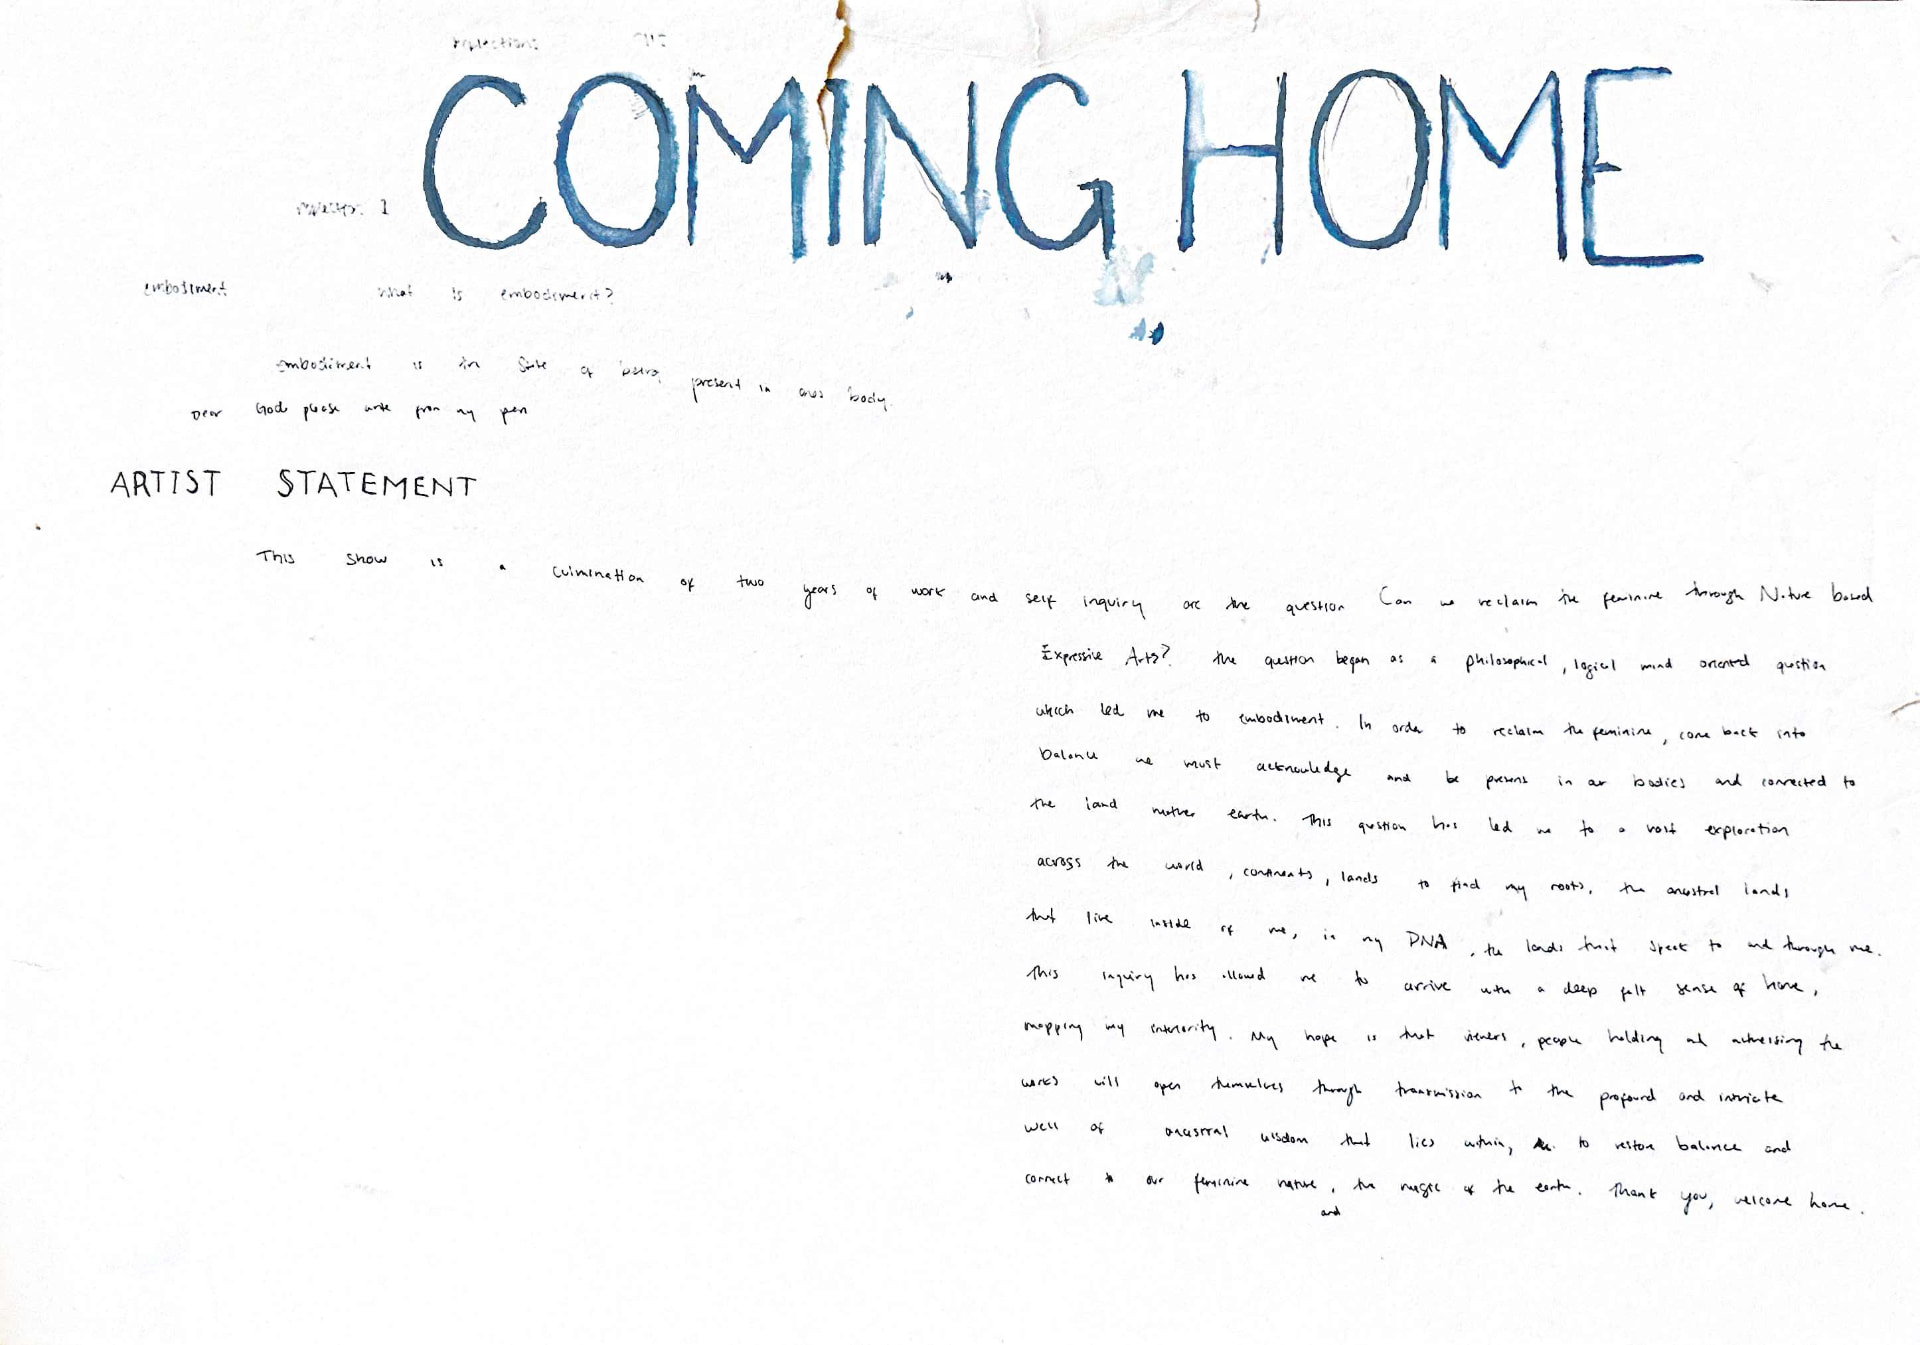 reflections
COMING HOME
1
embodiment What is embodiment?
embodiment is the state of being present in ones body.
Dear God please write from my pen
ARTIST STATEMENT
This show is a culmination of two years of work and self inquiry are the question Can we reclaim the feminine through Nature based
Expressive Arts? the question began as a philosophical, logical mind oriented question
which led me to embodiment. In order to reclaim the feminine, come back into
balance we must acknowledge and be present in our bodies and connected to
the land mother earth. This question has led me to a vast exploration
across the world, continents, lands to find my roots, the ancestral lands
that live inside of me, in my DNA, the lands that speak to and through me.
This inquiry has allowed me to arrive with a deep felt sense of home,
mapping my interiority. My hope is that viewers, people holding and witnessing the
works will open themselves through transmission to the profound and intricate
well of ancestral wisdom that lies within, to restore balance and
connect to our feminine nature, the magic of the earth. Thank you, welcome home.
and